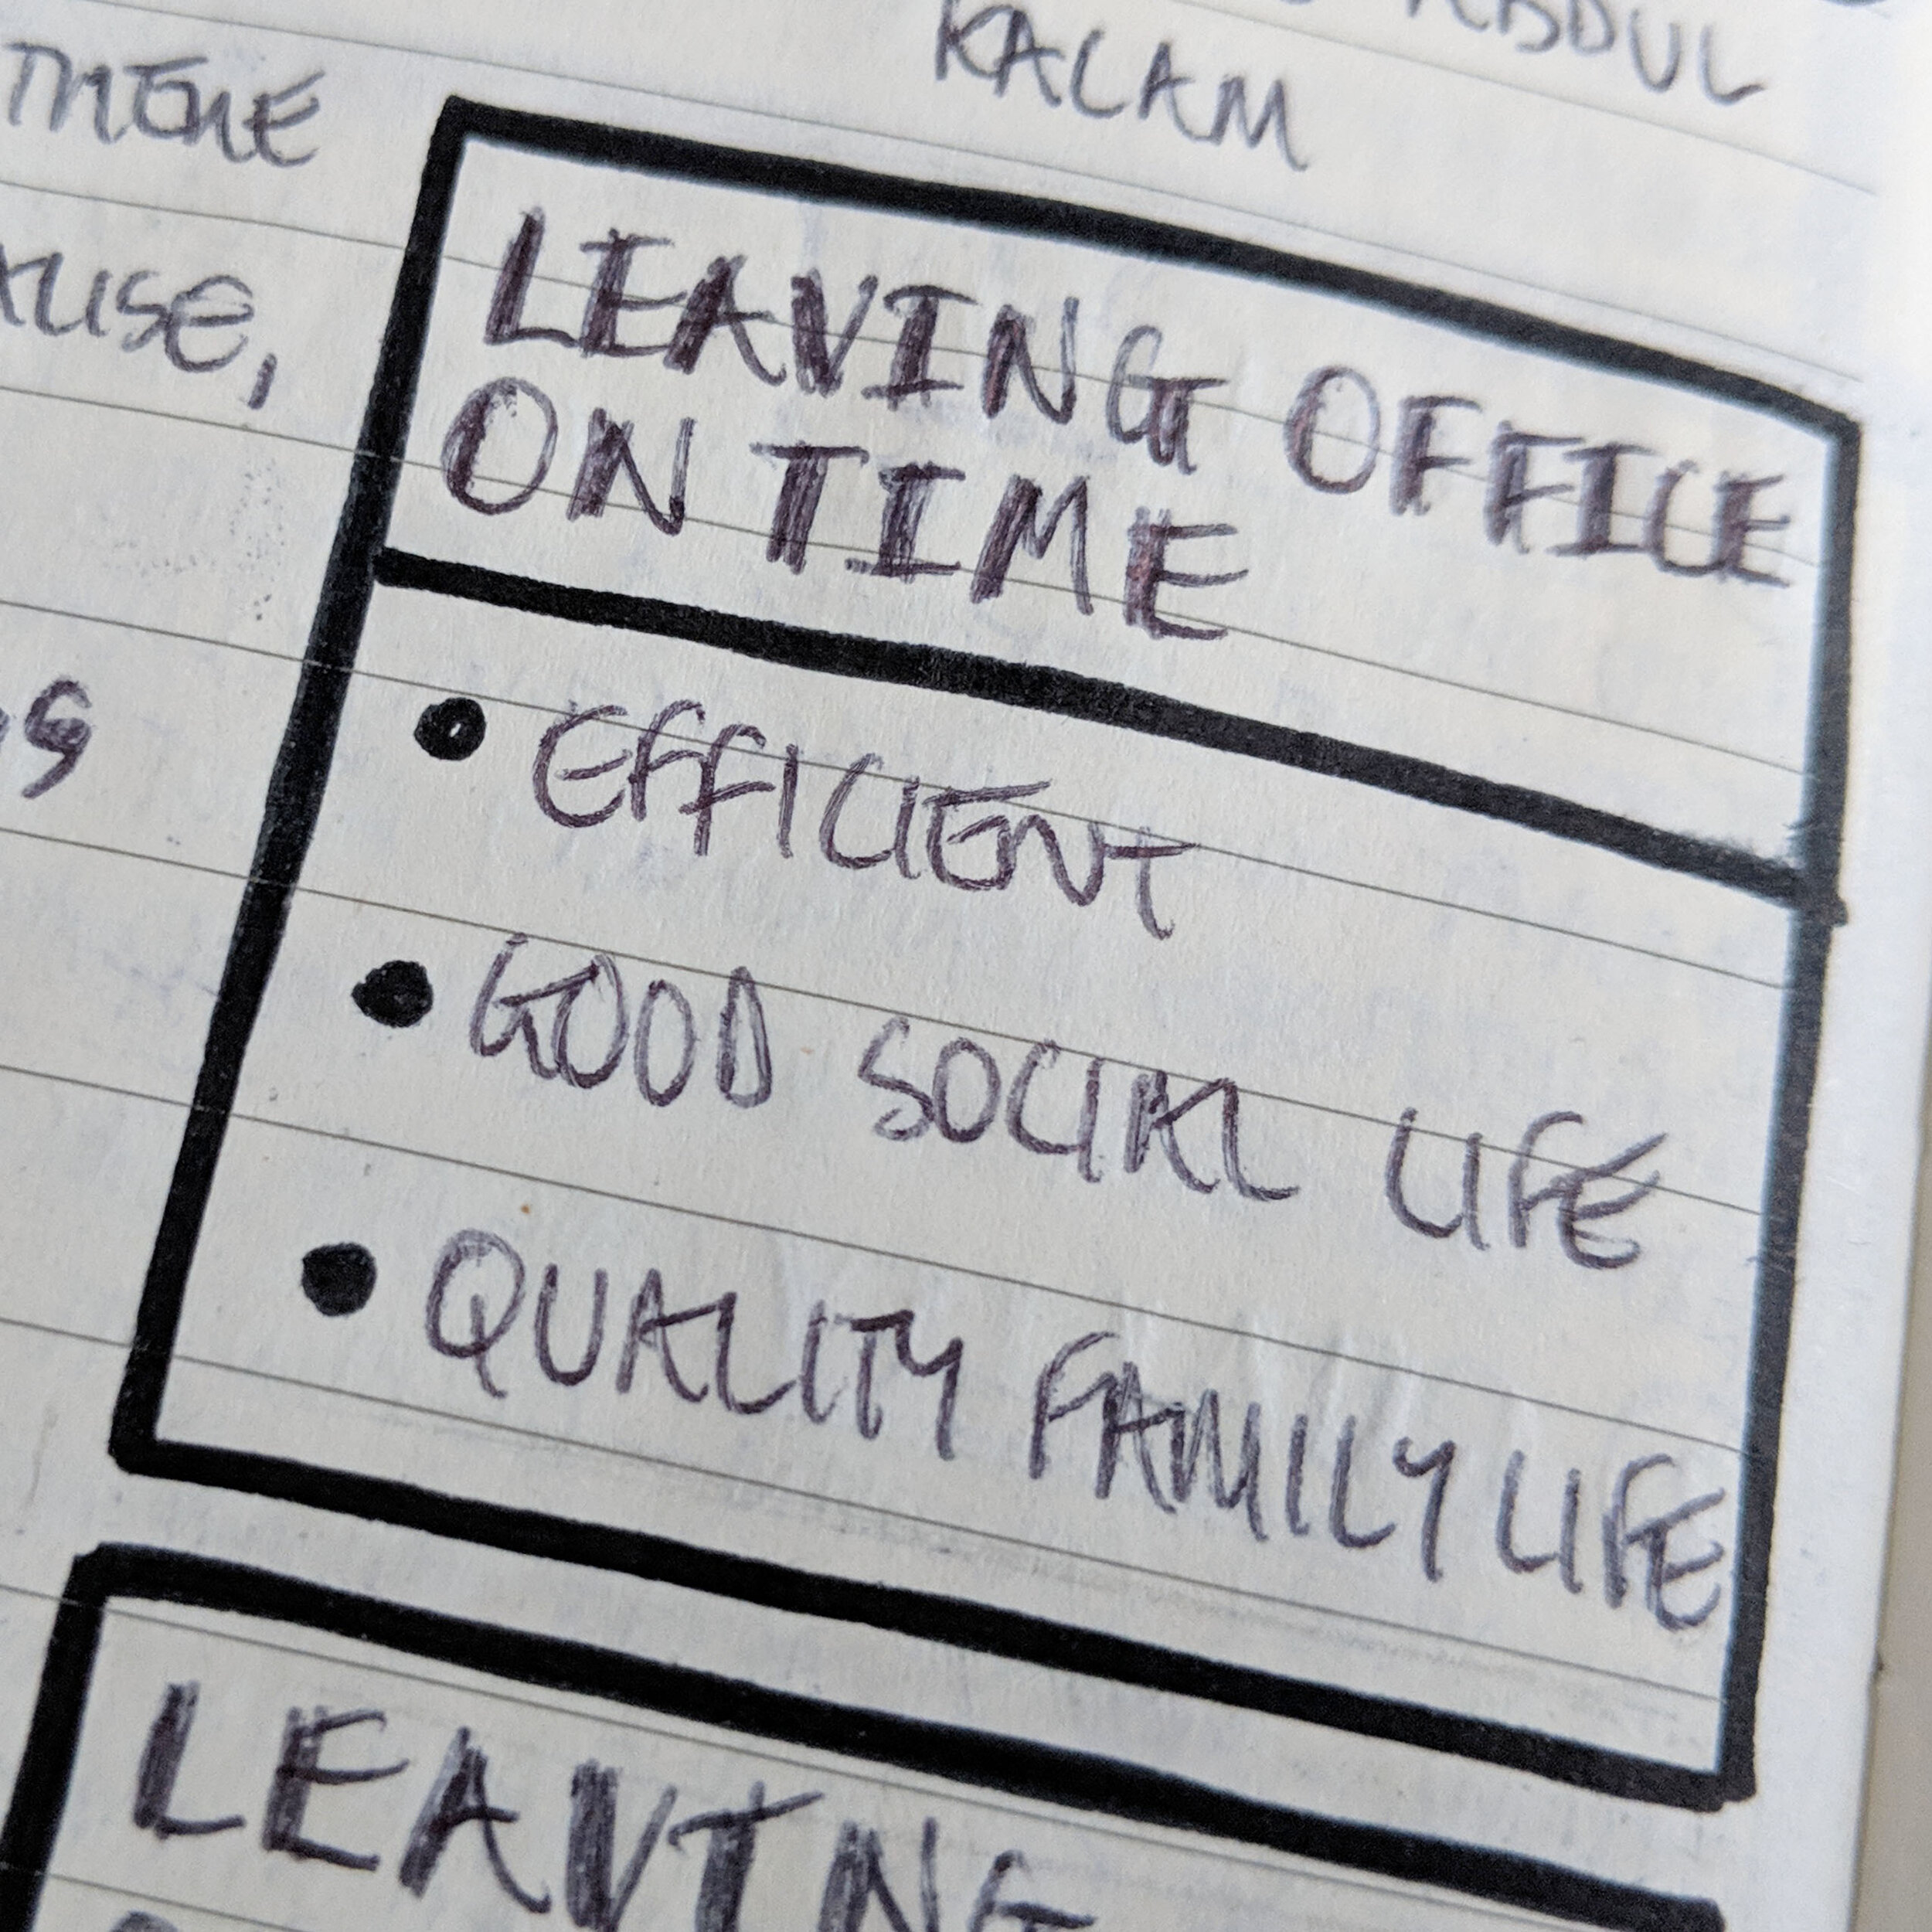 ABDUL
KALAM
THERE
LEAVING OFFICE
ON TIME
• EFFICIENT
• GOOD SOCIAL LIFE
• QUALITY FAMILY LIFE
LEAVING